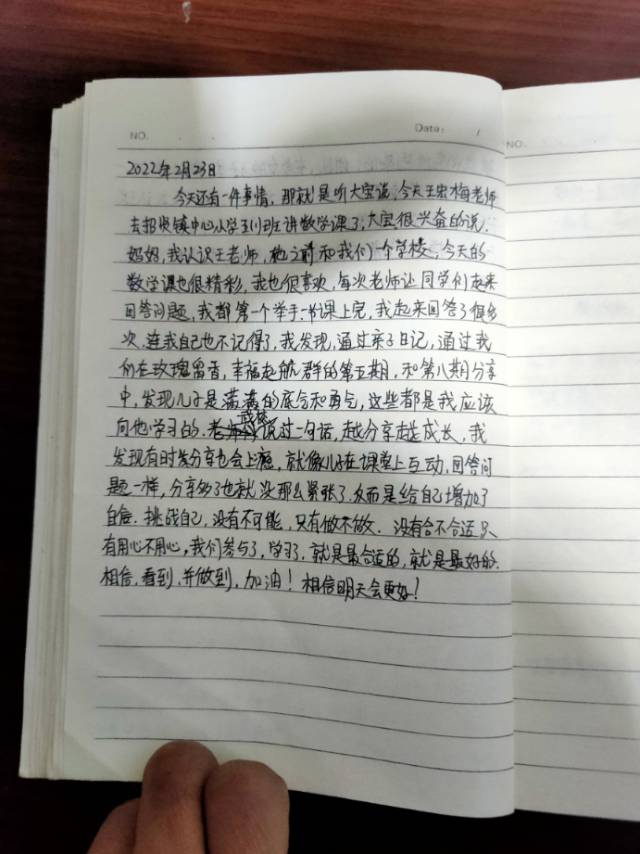 NO.
Date: /
NO.
2022年2月23日
今天还有一件事情，那就是听大宝说，今天王宏梅老师
去招贤镇中心小学五(1)班讲数学课了，大宝很兴奋的说，
妈妈，我认识王老师，她之前和我们一个学校，今天的
数学课也很精彩，我也很喜欢，每次老师让同学们起来
回答问题，我都第一个举手，一节课上完，我起来回答了很多
次，连我自己也不记得了，我发现，通过亲子日记，通过我
们在玫瑰留香，幸福起航群的第五期，和第八期分享
中，发现儿子是满满的底气和勇气，这些都是我应该
向他学习的。说过一句话，越分享越成长，我
发现有时候分享也会上瘾，就像儿子在课堂上互动，回答问
题一样，分享多了也就没那么紧张了，反而是给自己增加了
自信，挑战自己，没有不可能，只有做不做，没有合不合适，只
有用心不用心，我们参与了，学习了，就是最合适的，就是最好的，
相信，看到，并做到，加油！相信明天会更好！